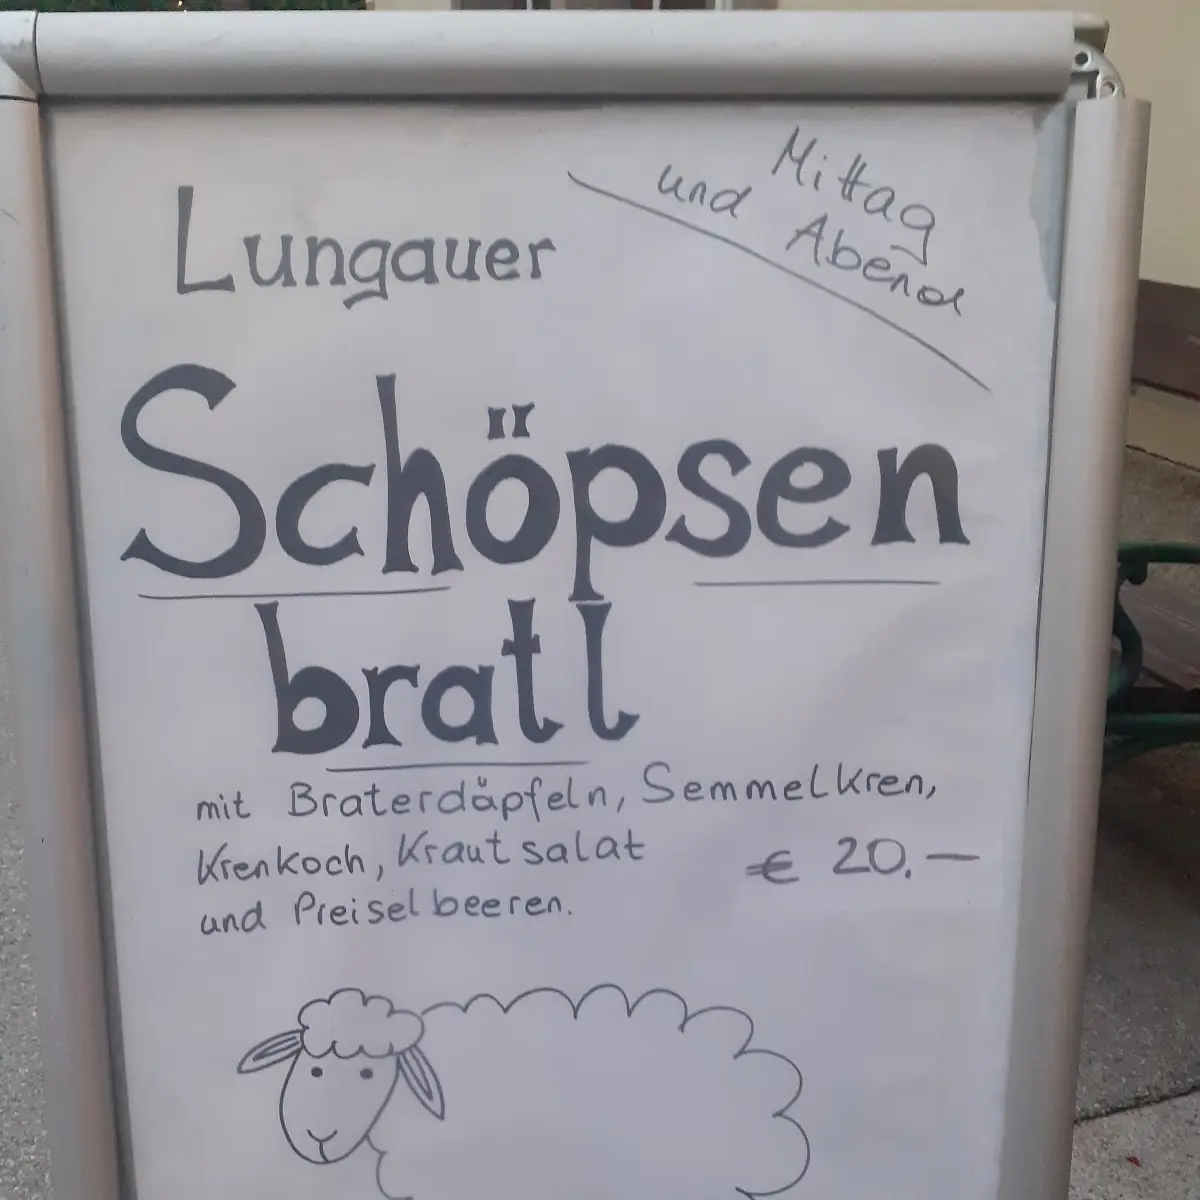 Mittag
und Abend
Lungauer
Schöpsen
bratl
mit Braterdäpfeln, Semmelkren,
Krenkoch, Krautsalat
und Preiselbeeren.
€ 20.—